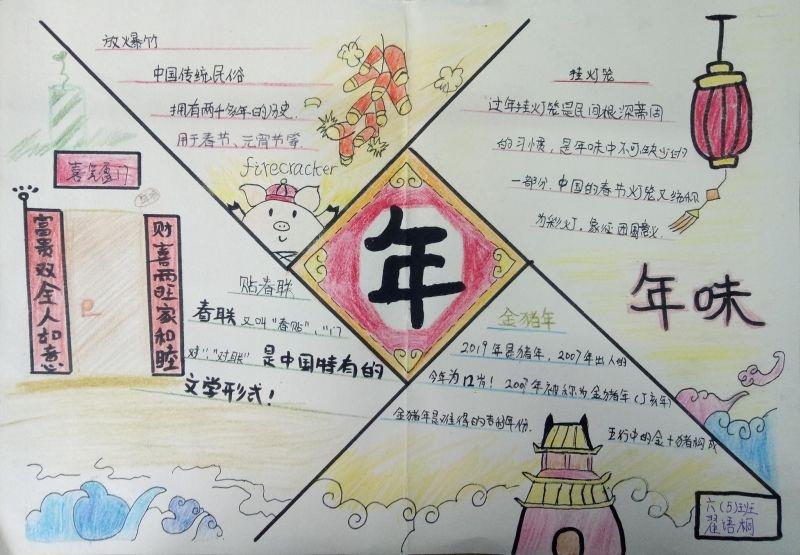 放火爆竹
中国传统民俗
拥有两千多年的历史.
用于春节、元宵节等
firecracker
挂灯笼
过年挂灯笼是民间根深蒂固
的习惯，是年味中不可缺少的
一部分.中国的春节灯笼又统称
为彩灯，象征团圆意义.
年味
年
富贵双全人如意
财喜两旺家和睦
贴春联
春联又叫"春贴"、"门
对"、"对联"是中国特有的
文学形式！
金猪年
2019年是猪年，2007年出人的
今年为12岁！2007年被称为金猪年（丁亥年）
金猪年是难得的
年份.
五行中的金+猪构成
六(5)班
翟语桐